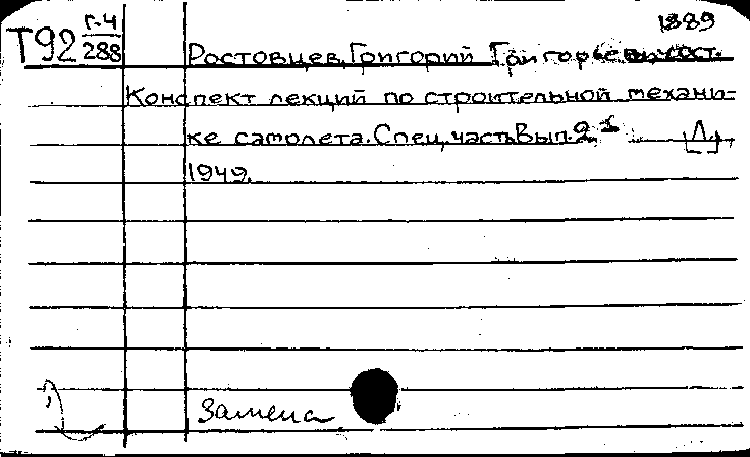 1889
Т92 Г-4/288
Ростовцев, Григорий Григорьевич сост.
Конспект лекций по строительной механи-
ке самолета. Спец. часть. Вып. 2
1949.
Замена